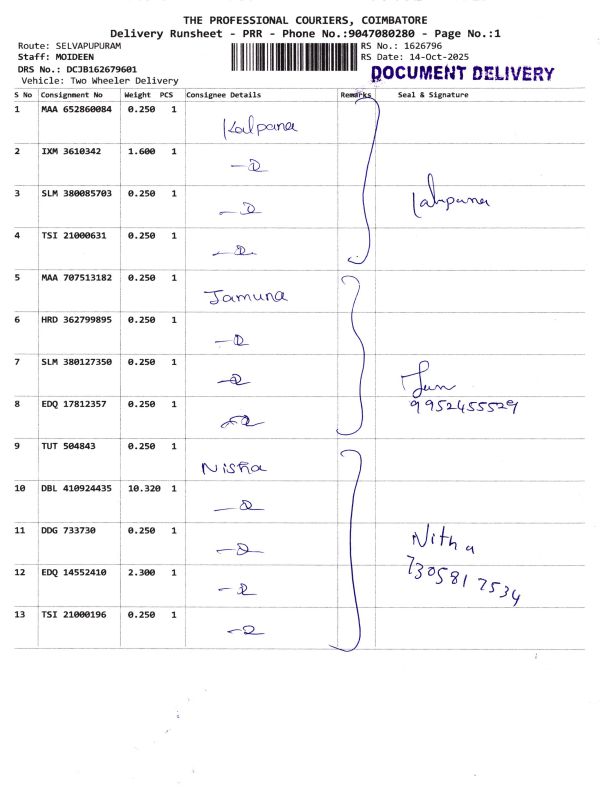 THE PROFESSIONAL COURIERS, COIMBATORE
Delivery Runsheet - PRR - Phone No.:9047080280 - Page No.:1
Route: SELVAPUPURAM
RS No.: 1626796
Staff: MOIDEEN
RS Date: 14-Oct-2025
DRS No.: DCJB162679601
DOCUMENT DELIVERY
Vehicle: Two Wheeler Delivery
S No Consignment No Weight PCS Consignee Details Remarks Seal & Signature
1 MAA 652860084 0.250 1 Kalpana
2 IXM 3610342 1.600 1
3 SLM 380085703 0.250 1 Kalpana
4 TSI 21000631 0.250 1
5 MAA 707513182 0.250 1 Jamuna
6 HRD 362799895 0.250 1
7 SLM 380127350 0.250 1
8 EDQ 17812357 0.250 1 9952455529
9 TUT 504843 0.250 1 Nisha
10 DBL 410924435 10.320 1
11 DDG 733730 0.250 1 Nitha
12 EDQ 14552410 2.300 1 7305817534
13 TSI 21000196 0.250 1